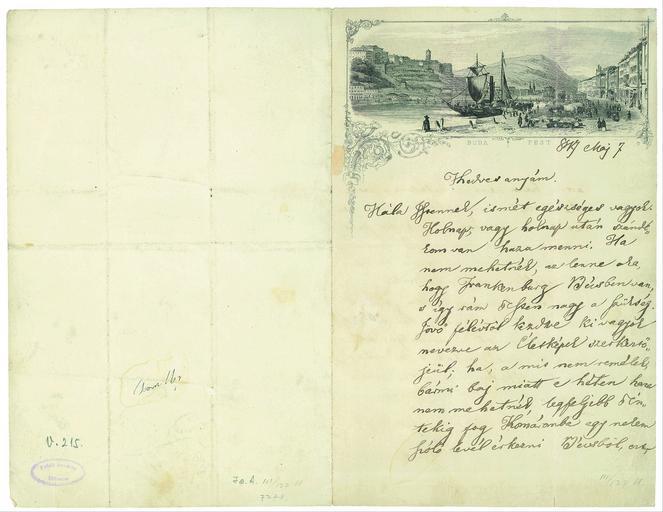 BUDA PEST
847 Máj 7
Kedves anyám.
Hála Istennek, ismét egészséges vagyok.
Holnap, vagy holnap után szándé-
kom van haza menni. Ha
nem mehetnék, az lenne oka,
hogy Frankenburg Bécsben van,
s így rám itten nagy a szükség.
Jövő félévtől kezdve ki vagyok
nevezve az Életképek szerkesztő-
jéül, ha, a mit nem remélek,
bármi baj miatt e héten haza
nem mehetnék, legfeljebb pén-
tekig fog Komáromba egy nekem
szóló levél érkezni Bécsből, azt
V. 215.
III/122
7228
III/122